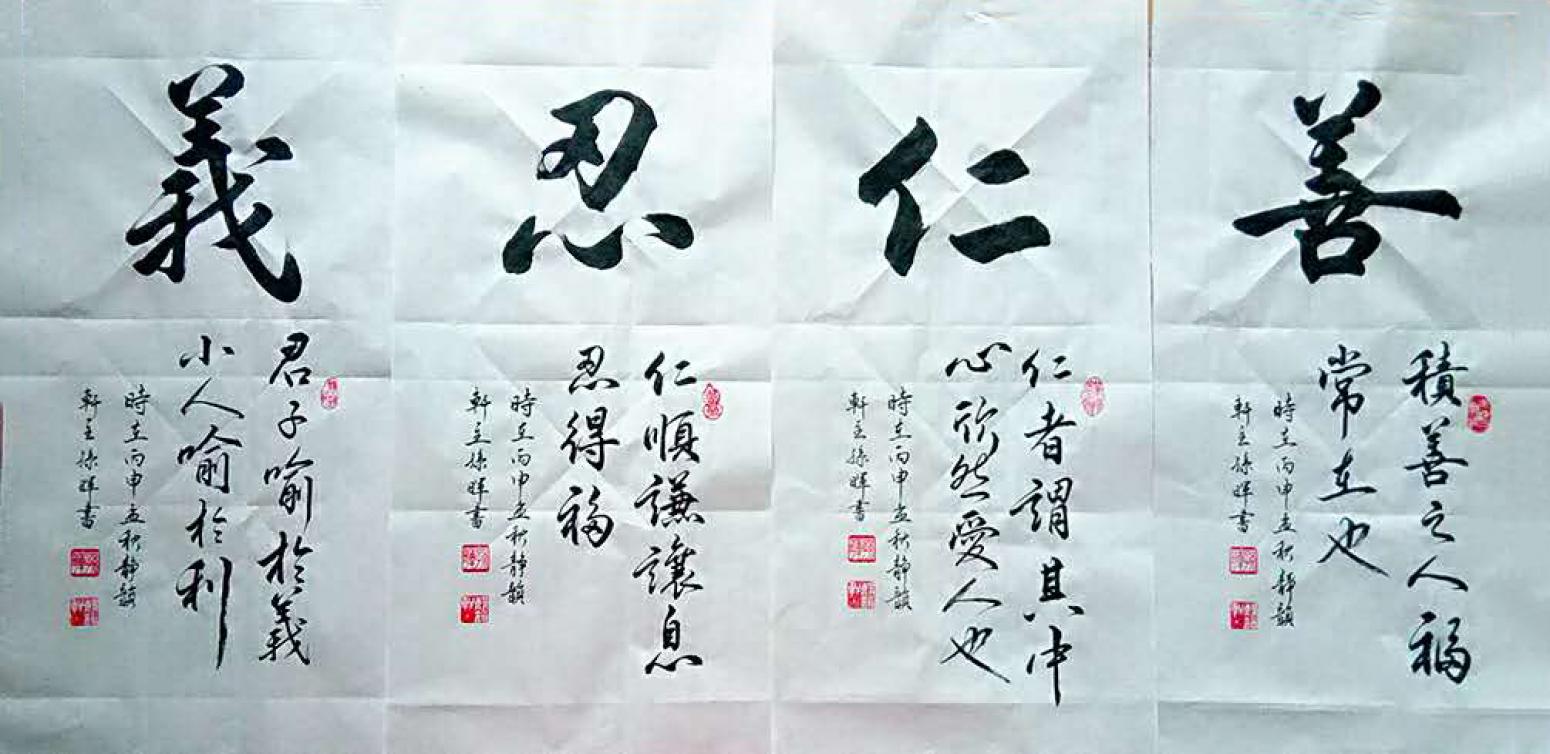 善
積善之人福
常在也
時在丙申孟秋靜韻
軒主徐暉書
仁
仁者謂其中
心欣然愛人也
時在丙申孟秋靜韻
軒主徐暉書
忍
仁順謙讓息
忍得福
時在丙申孟秋靜韻
軒主徐暉書
義
君子喻於義
小人喻於利
時在丙申孟秋靜韻
軒主徐暉書